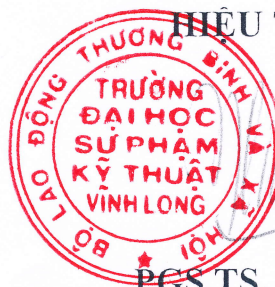 HIỆU T
BỘ LAO ĐỘNG THƯƠNG BINH VÀ XÃ HỘI
TRƯỜNG
ĐẠI HỌC
SƯ PHẠM
KỸ THUẬT
VĨNH LONG
PGS.TS